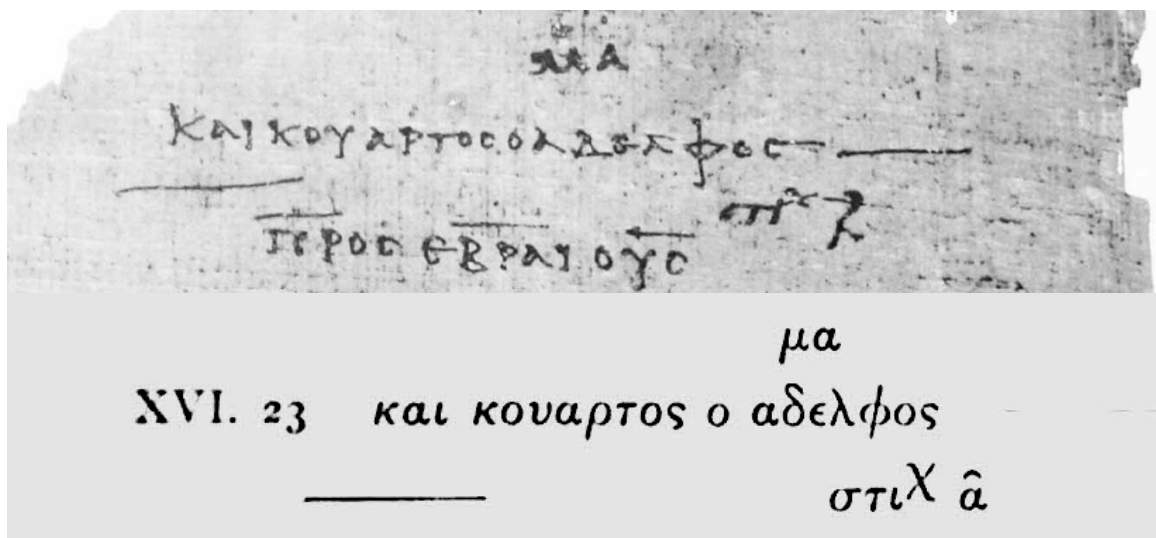 ΜΑ
ΚΑΙΚΟΥΑΡΤΟϹΟΑΔΕΛΦΟϹ
ΠΡΟϹ ΕΒΡΑΙΟΥϹ
μα
XVI. 23 και κουαρτος ο αδελφος
στιχ α̂